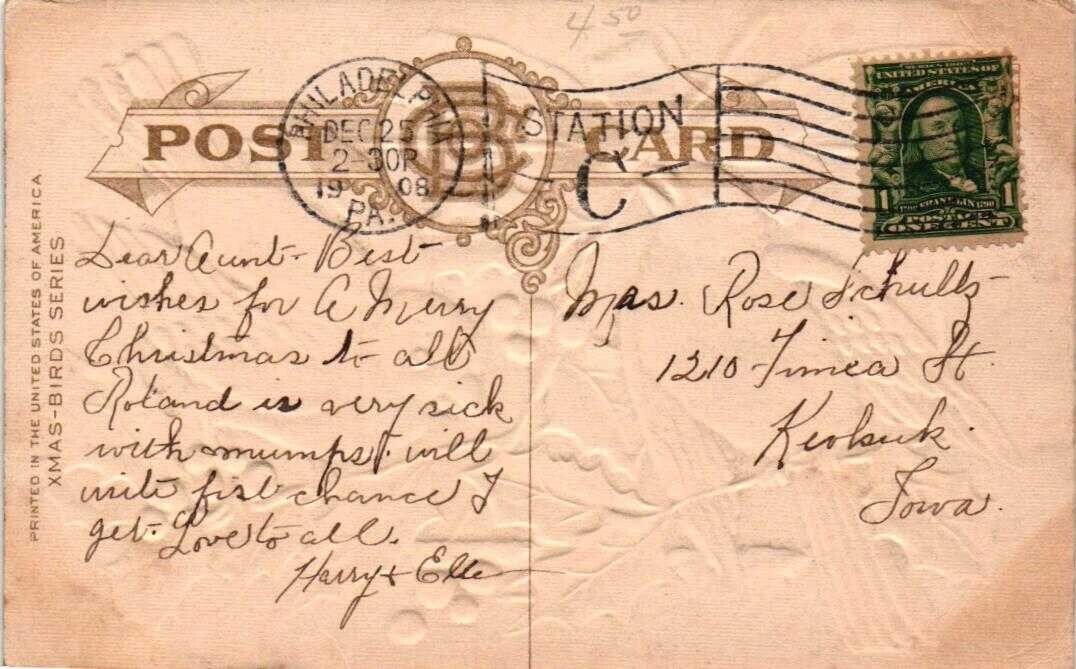 4 50
POST CARD
PHILADELPHIA
DEC 25
2-30P
19 08
PA.
STATION
C
SERIES 1902
UNITED STATES OF
AMERICA
1 1
1706 FRANKLIN 1790
POSTAGE
ONE CENT
PRINTED IN THE UNITED STATES OF AMERICA
XMAS-BIRDS SERIES
Dear Aunt - Best
wishes for A Merry
Christmas to all
Roland is very sick
with mumps. will
write first chance I
get. Love to all.
Harry + Elle
Mrs. Rose Schultz
1210 Timea St.
Keokuk.
Iowa.